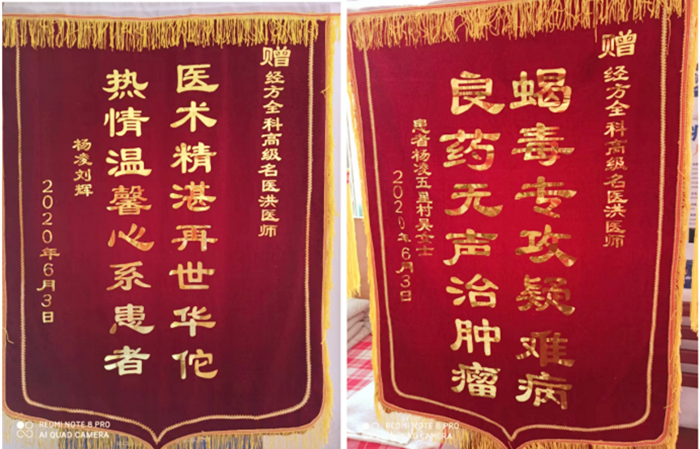 赠经方全科高级名医洪医师
医术精湛再世华佗
热情温馨心系患者
杨凌刘辉
2020年6月3日
REDMI NOTE 8 PRO
AI QUAD CAMERA
赠经方全科高级名医洪医师
蝎毒专攻疑难病
良药无声治肿瘤
患者杨凌五星村吴女士
2020年6月3日
REDMI NOTE 8 PRO
AI QUAD CAMERA